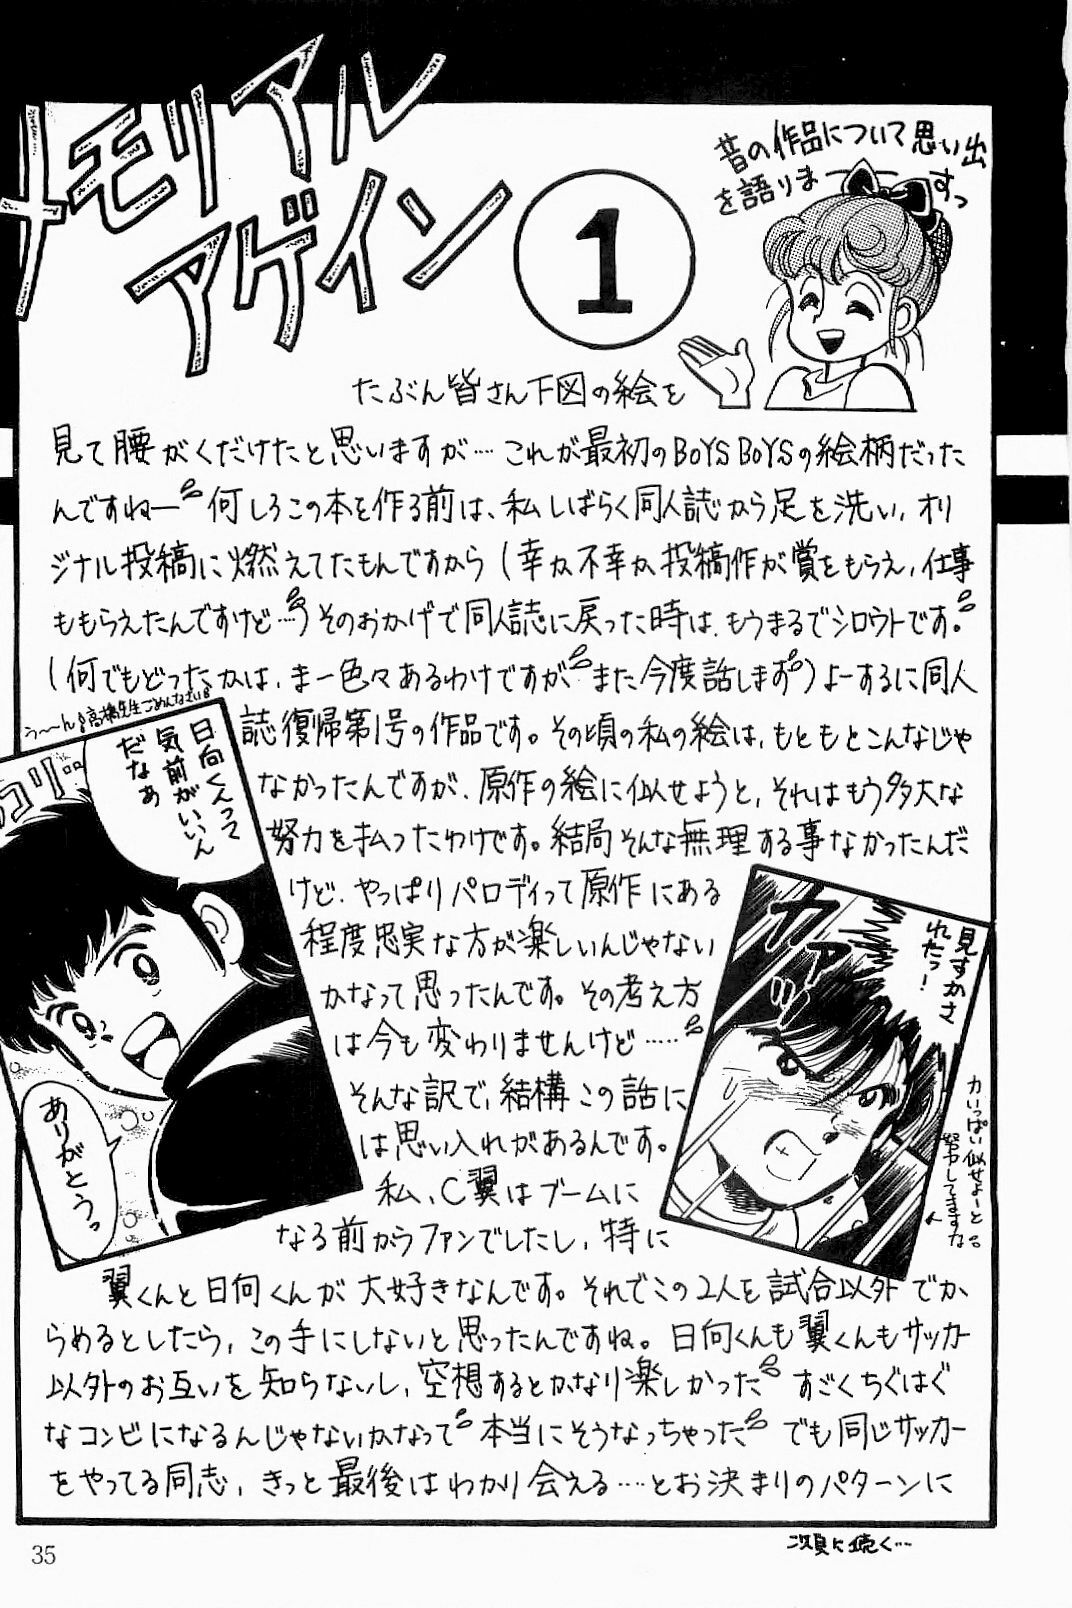 メモリアル
アゲイン
1
昔の作品について思い出
を語りま〜〜すっ
たぶん皆さん下図の絵を
見て腰がくだけたと思いますが…これが最初のBOYS BOYSの絵柄だった
んですねー 何しろこの本を作る前は、私しばらく同人誌から足を洗い、オリ
ジナル投稿に燃えてたもんですから(幸か不幸か投稿作が賞をもらえ、仕事
ももらえたんですけど…)そのおかげで同人誌に戻った時は、もうまるでシロウトです。
(何でもどったかは、まー色々あるわけですが また今度話します)よーするに同人
誌復帰第1号の作品です。その頃の私の絵は、もともとこんなじゃ
なかったんですが、原作の絵に似せようと、それはもう多大な
努力を払ったわけです。結局そんな無理する事なかったんだ
けど、やっぱりパロディって原作にある
程度忠実な方が楽しいんじゃない
かなって思ったんです。その考え方
は今も変わりませんけど……
そんな訳で、結構この話に
は思い入れがあるんです。
私、C翼はブームに
なる前からファンでしたし、特に
翼くんと日向くんが大好きなんです。それでこの2人を試合以外でか
らめるとしたら、この手にしないと思ったんですね。日向くんも翼くんもサッカー
以外のお互いを知らないし、空想するとかなり楽しかった すごくちぐはぐ
なコンビになるんじゃないかなって 本当にそうなっちゃった でも同じサッカー
をやってる同志、きっと最後はわかり会える…とお決まりのパターンに
う〜〜ん 高橋先生ごめんなさい
日向くんって
気前がいいん
だなあ
ありがとうっ
カァッ
見すかさ
れたっ!
力いっぱい似せよーと
努力してますな
次頁に続く…
35